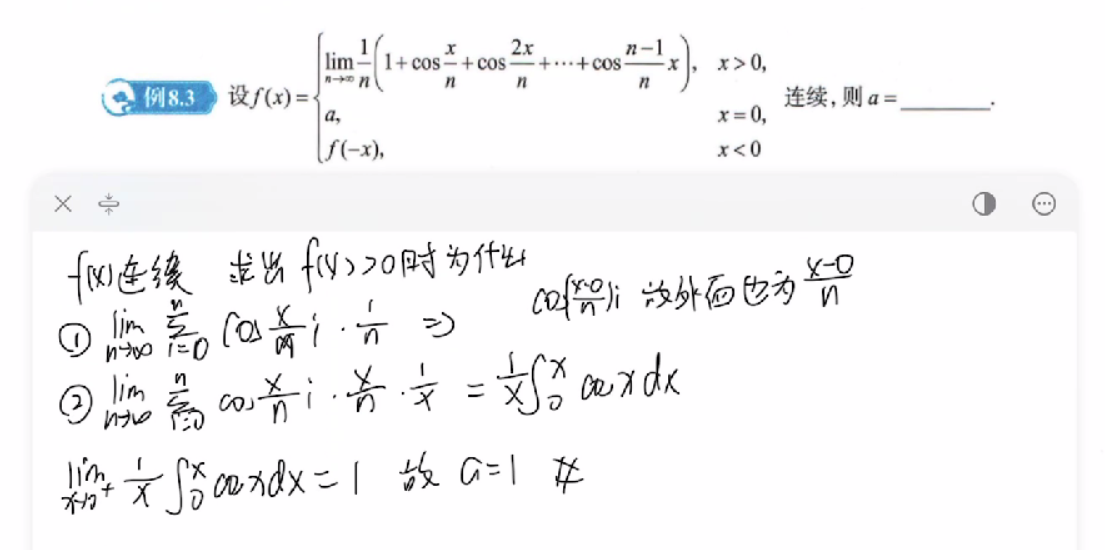 例8.3 设f(x)={lim_{n→∞} 1/n(1+cos x/n+cos 2x/n+⋯+cos (n-1)/n x), x>0,
a, x=0, 连续,则a=________.
f(-x), x<0
f(x)连续 求出f(x)>0时为什么
cos(x-0/n)i 故外面也为 x-0/n
① lim_{n→∞} Σ_{i=0}^{n} cos x/n i · 1/n ⇒
② lim_{n→∞} Σ_{i=0}^{n} cos x/n i · x/n · 1/x = 1/x ∫_0^x cos x dx
lim_{x→0+} 1/x ∫_0^x cos x dx = 1 故 a=1 #